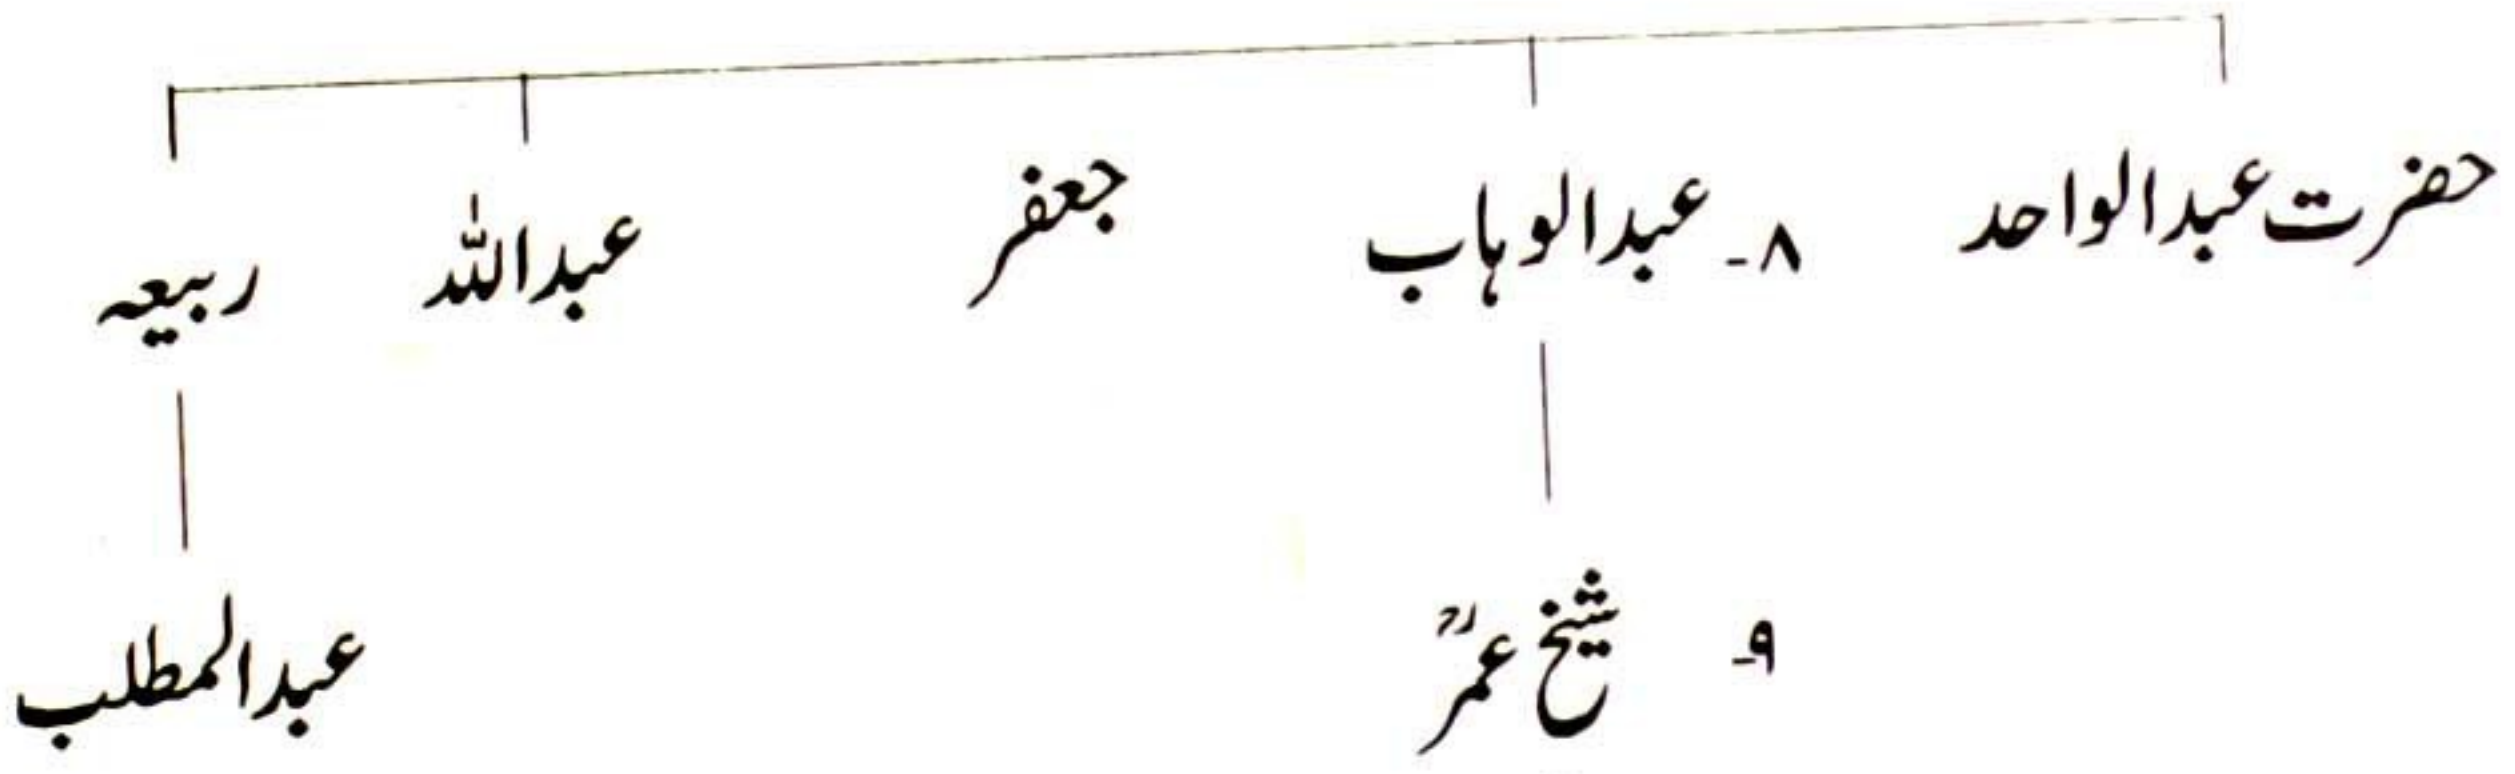 حضرت عبدالواحد ۸۔ عبدالوہاب جعفر عبداللہ ربیعہ
۹۔ شیخ عمرؒ عبدالمطلب